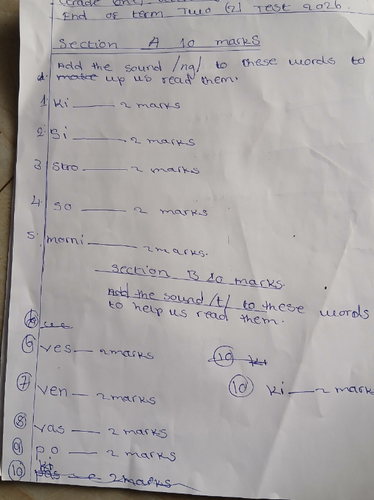 End of term Two (2) Test 2026.
Section A 10 marks
Add the sound /ng/ to these words to
make up us read them.
1. Ki ___ 2 marks
2. Si ___ 2 marks
3. Stro ___ 2 marks
4. So ___ 2 marks
5. morni ___ 2 marks.
Section B 10 marks.
Add the sound /t/ to these words
to help us read them.
6 ves — 2 marks
7 ven — 2 marks
8 vas — 2 marks
9 po — 2 marks
10 ki — 2 mark
10 — 2 marks